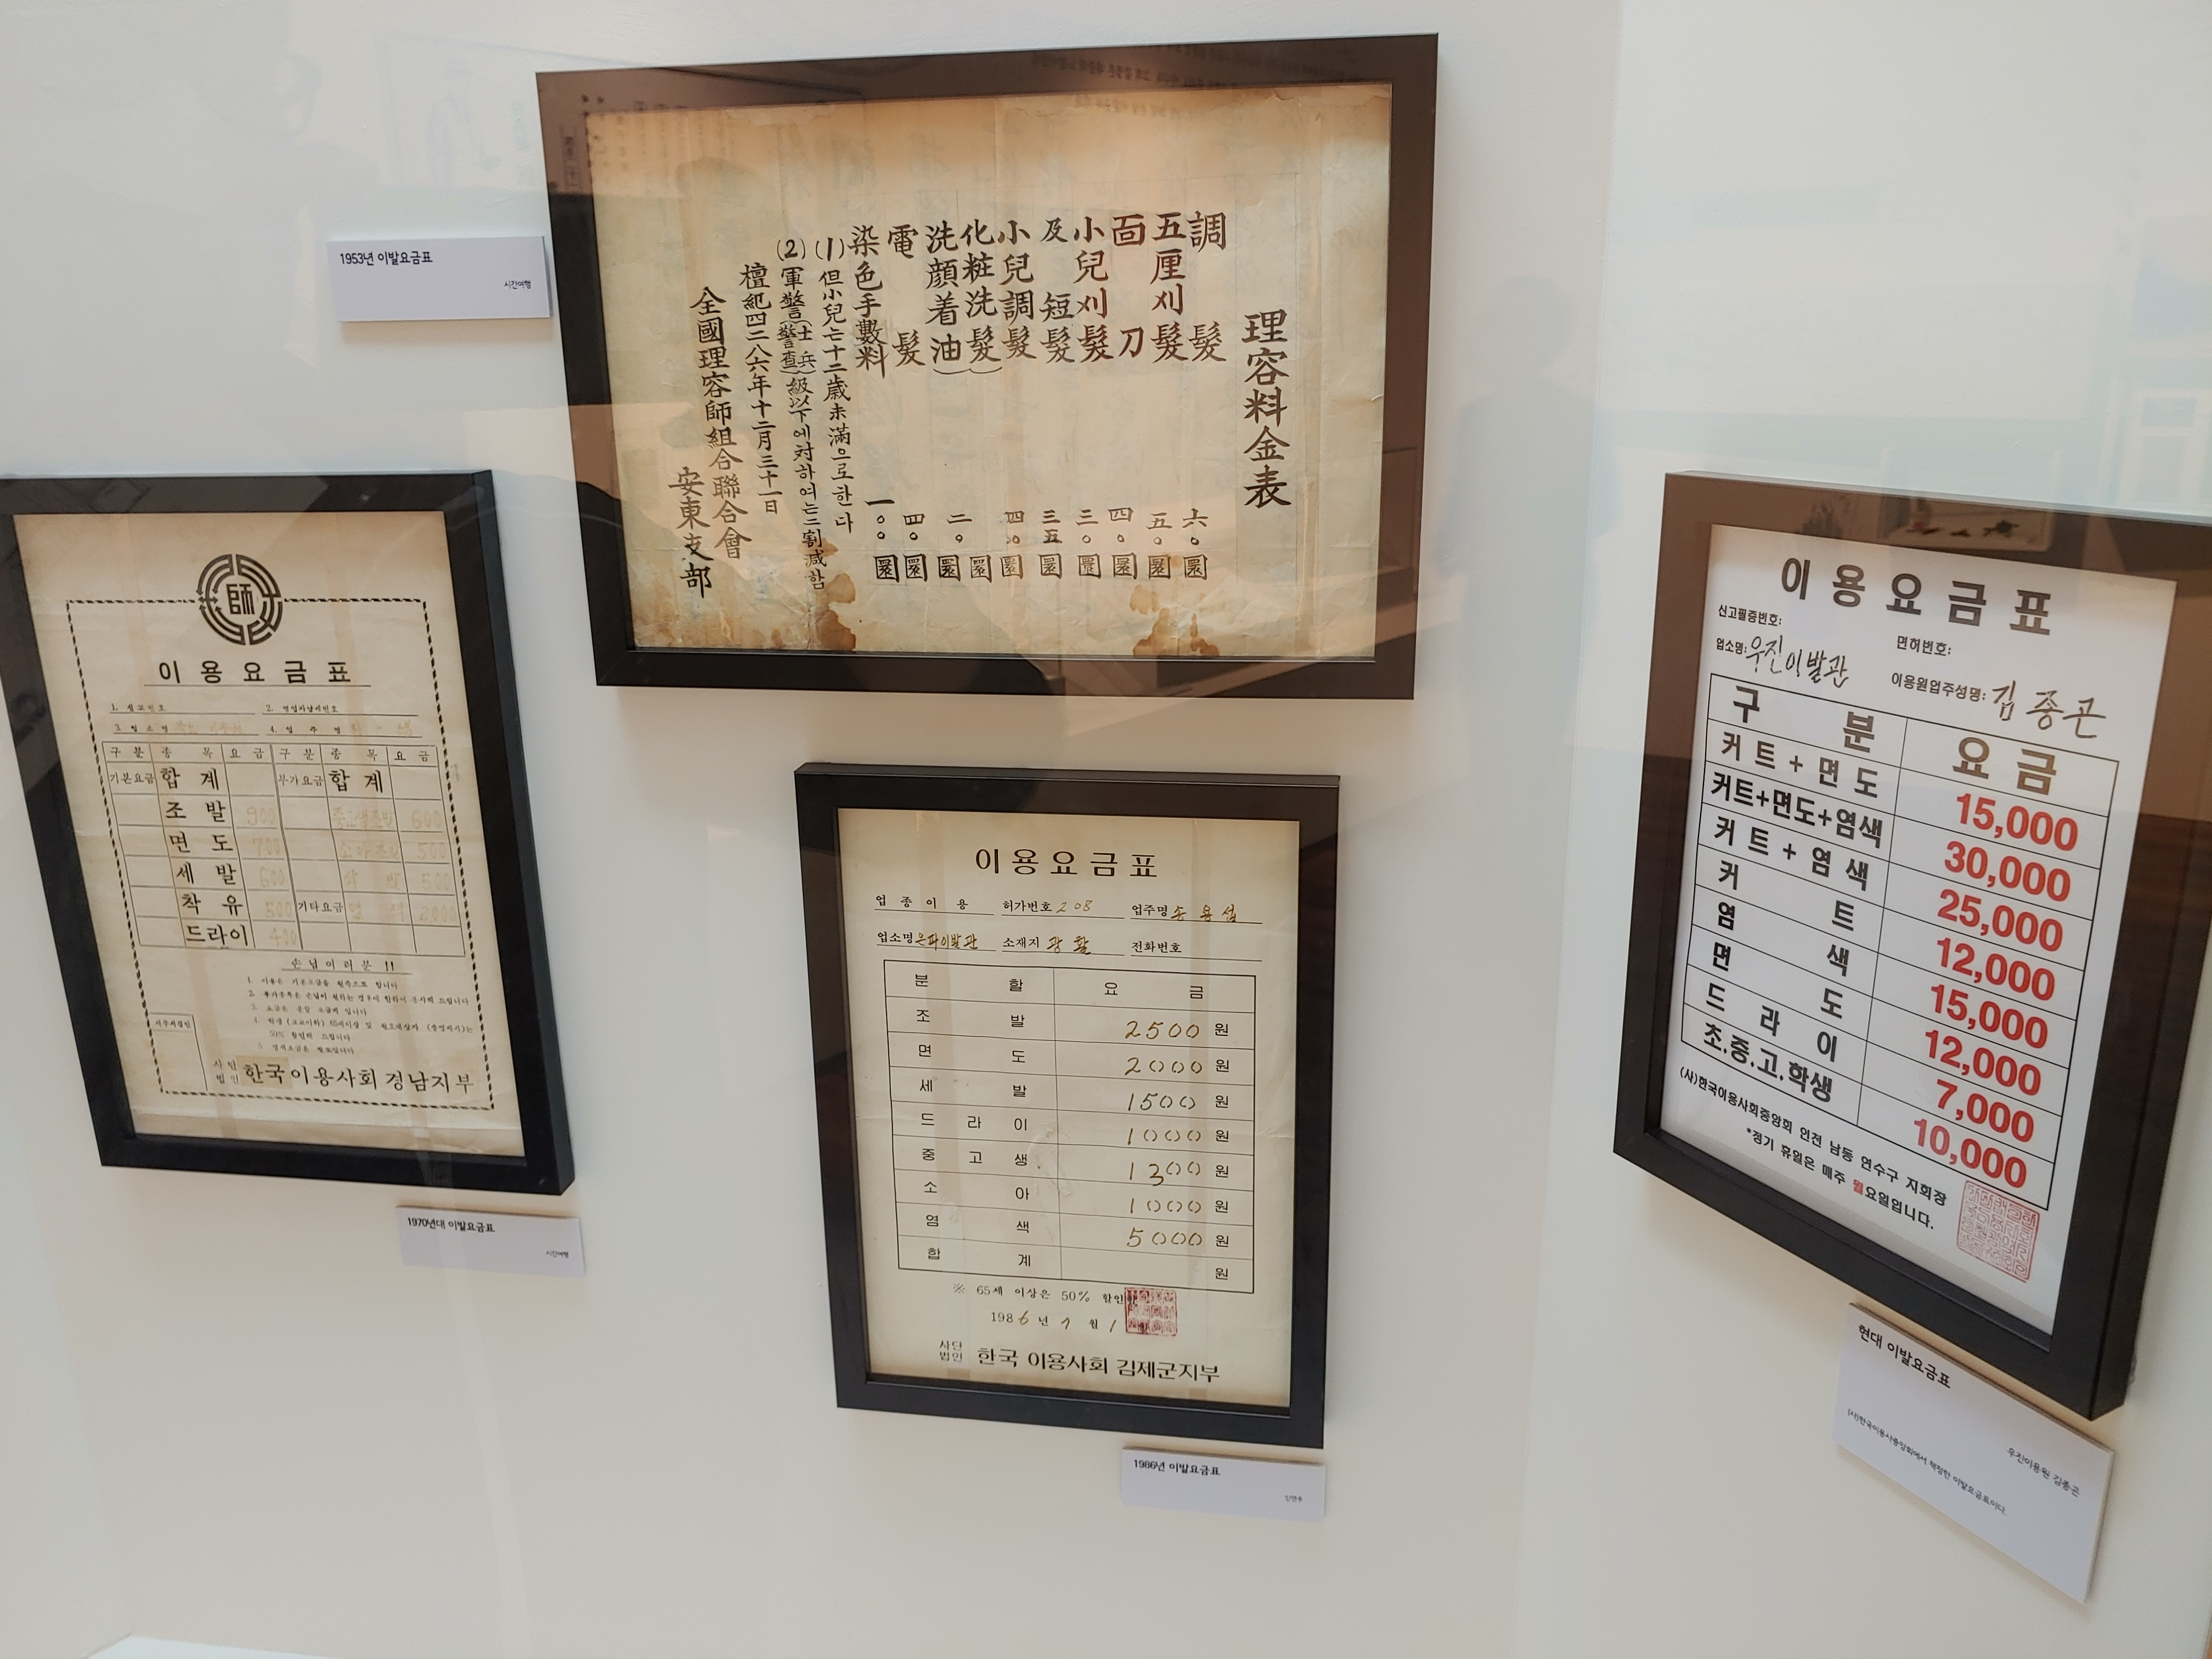 1953년 이발요금표
시간여행
理容料金表
調髮 六〇圜
五厘刈髮 五〇圜
面刀 四〇圜
小兒刈髮 三〇圜
及短髮 三五圜
小兒調髮 四〇圜
化粧洗髮 圜
洗顔着油 二〇圜
電髮 四〇圜
染色手數料 一〇〇圜
(1) 但小兒는十二歲未滿으로한다
(2) 軍警(士兵 警査)級以下에対하여는二割減함
檀紀四二八六年十二月三十一日
全國理容師組合聯合會
安東支部
師
이용요금표
3. 업소명
4. 업주명
구분 종목 요금 구분 종목 요금
기본요금 합계 부가요금 합계
조발 900 중고생조발 600
면도 700 500
세발 600 500
착유 500 기타요금 염색 2000
드라이 400
손님여러분!!
1. 이용은 기본요금을 원측으로 합니다
2. 부가종목은 손님이 원하는 경우에 한하여 봉사해 드립니다
4. 학생 (고교이하) 65세이상 및 원호대상자 (증명제시)는
50% 할인해 드립니다
사단
법인 한국이용사회 경남지부
1970년대 이발요금표
시간여행
이용요금표
업종 이용 허가번호 208 업주명 송용섭
업소명 은파이발관 소재지 광활 전화번호
분할 요금
조발 2500 원
면도 2000 원
세발 1500 원
드라이 1000 원
중고생 1300 원
소아 1000 원
염색 5000 원
합계 원
※ 65세 이상은 50% 할인함
1986년 7월 1
사단
법인 한국 이용사회 김제군지부
1986년 이발요금표
이용요금표
신고필증번호:
면허번호:
업소명: 우진이발관
이용원업주성명: 김종곤
구분 요금
커트+면도 15,000
커트+면도+염색 30,000
커트+염색 25,000
커트 12,000
염색 15,000
면도 12,000
드라이 7,000
초.중.고.학생 10,000
(사)한국이용사회중앙회 인천 남동 연수구 지회장
*정기 휴일은 매주 월요일입니다.
현대 이발요금표
우진이용원 김종곤
(사)한국이용사중앙회에서 책정한 이발요금표이다.